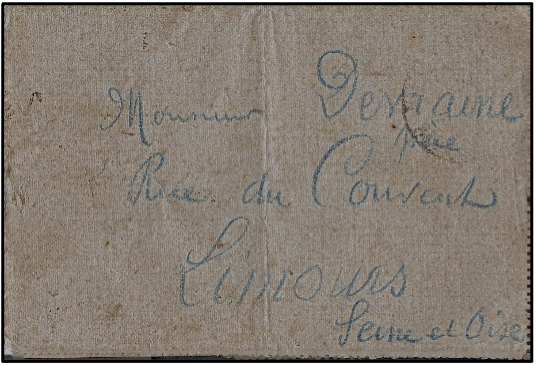 Monsieur Derraine
père
Rue du Couvent
Limours
Seine et Oise